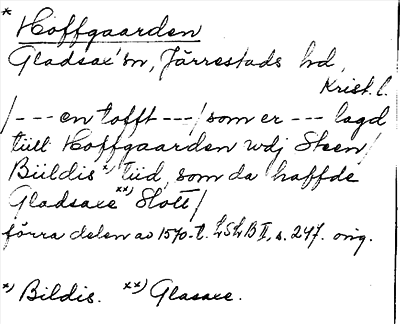 * Hoffgaarden
Gladsax's'n, Järrestads hd,
Krist. l.
/--- en tofft ---/ som er --- lagd
tüll Hoffgaarden udj Steen/
Büldis *) tüd, som da haffde
Gladsaxe **) Slott/
förra delen av 1570-t. LSLB II, s. 247. orig.
*) Bildis. **) Glasaxe.